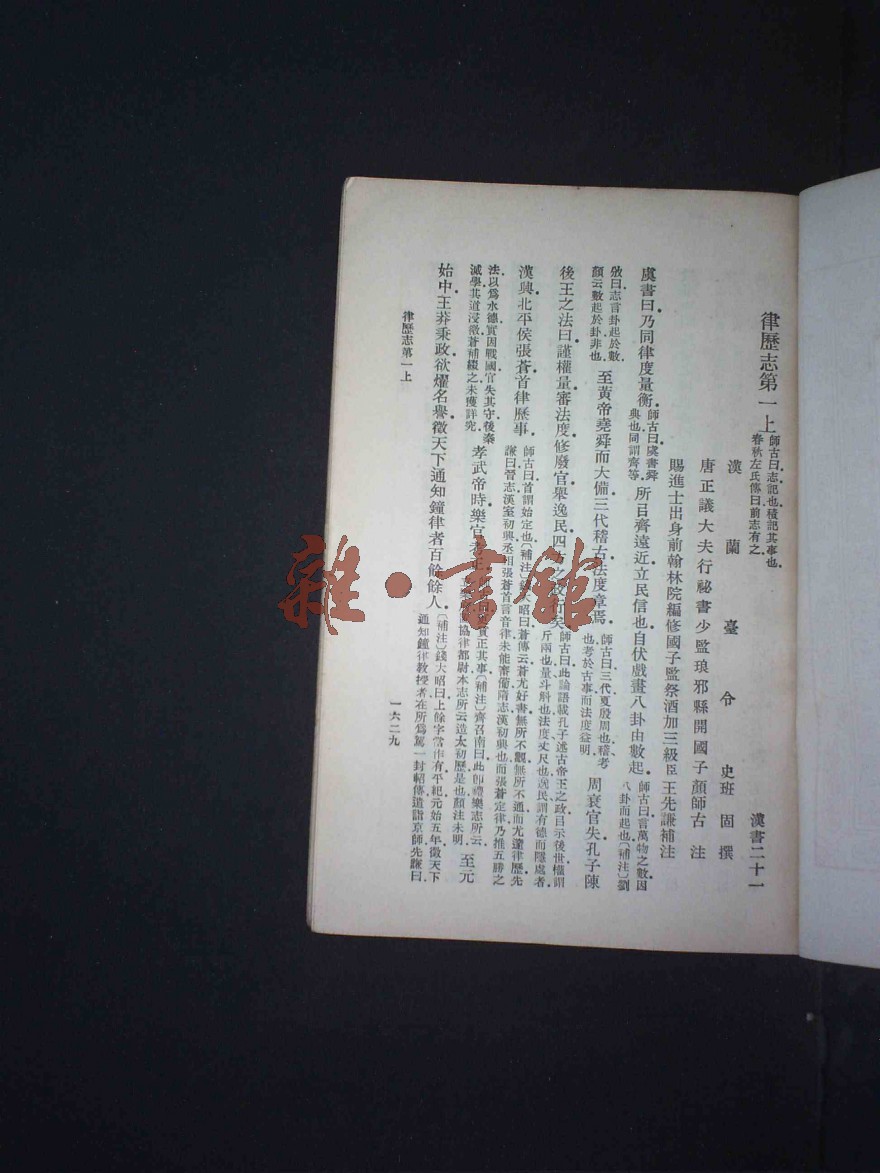 律歷志第一上
師古曰志記也積記其事也
春秋左氏傳曰前志有之
漢書二十一
漢蘭臺令史班固撰
唐正議大夫行祕書少監琅邪縣開國子顏師古注
賜進士出身前翰林院編修國子監祭酒加三級臣王先謙補注
虞書曰乃同律度量衡
師古曰虞書舜
典也同謂齊等
所㠯齊遠近立民信也自伏戲畫八卦由數起
師古曰言萬物之數因
八卦而起也〔補注〕劉
攽曰志言卦起於數
顏云數起於卦非也
至黃帝堯舜而大備三代稽古法度章焉
師古曰三代夏殷周也稽考
也考於古事而法度益明
周衰官失孔子陳
後王之法曰謹權量審法度修廢官舉逸民四方之政行矣
師古曰此論語載孔子述古帝王之政㠯示後世權謂
斤兩也量斗斛也法度丈尺也逸民謂有德而隱處者
漢興北平侯張蒼首律歷事
師古曰首謂始定也〔補注〕錢大昭曰蒼傳云蒼尤好書無所不觀無所不通而尤邃律歷先
謙曰晉志漢室初興丞相張蒼首言音律未能審備隋志漢初興也而張蒼定律乃推五勝之
法以為水德實因戰國官失其守後秦
滅學其道浸微蒼補綴之未獲詳究
孝武帝時樂官考正
師古曰更質正其事〔補注〕齊召南曰此即禮樂志所云
協律都尉本志所云造太初歷是也顏注未明
至元
始中王莽秉政欲燿名譽徵天下通知鐘律者百餘餘人
〔補注〕錢大昭曰上餘字當作有平紀元始五年徵天下
通知鐘律教授者在所為駕一封軺傳遣詣京師先謙曰
律歷志第一上
一六二九
雜·書館